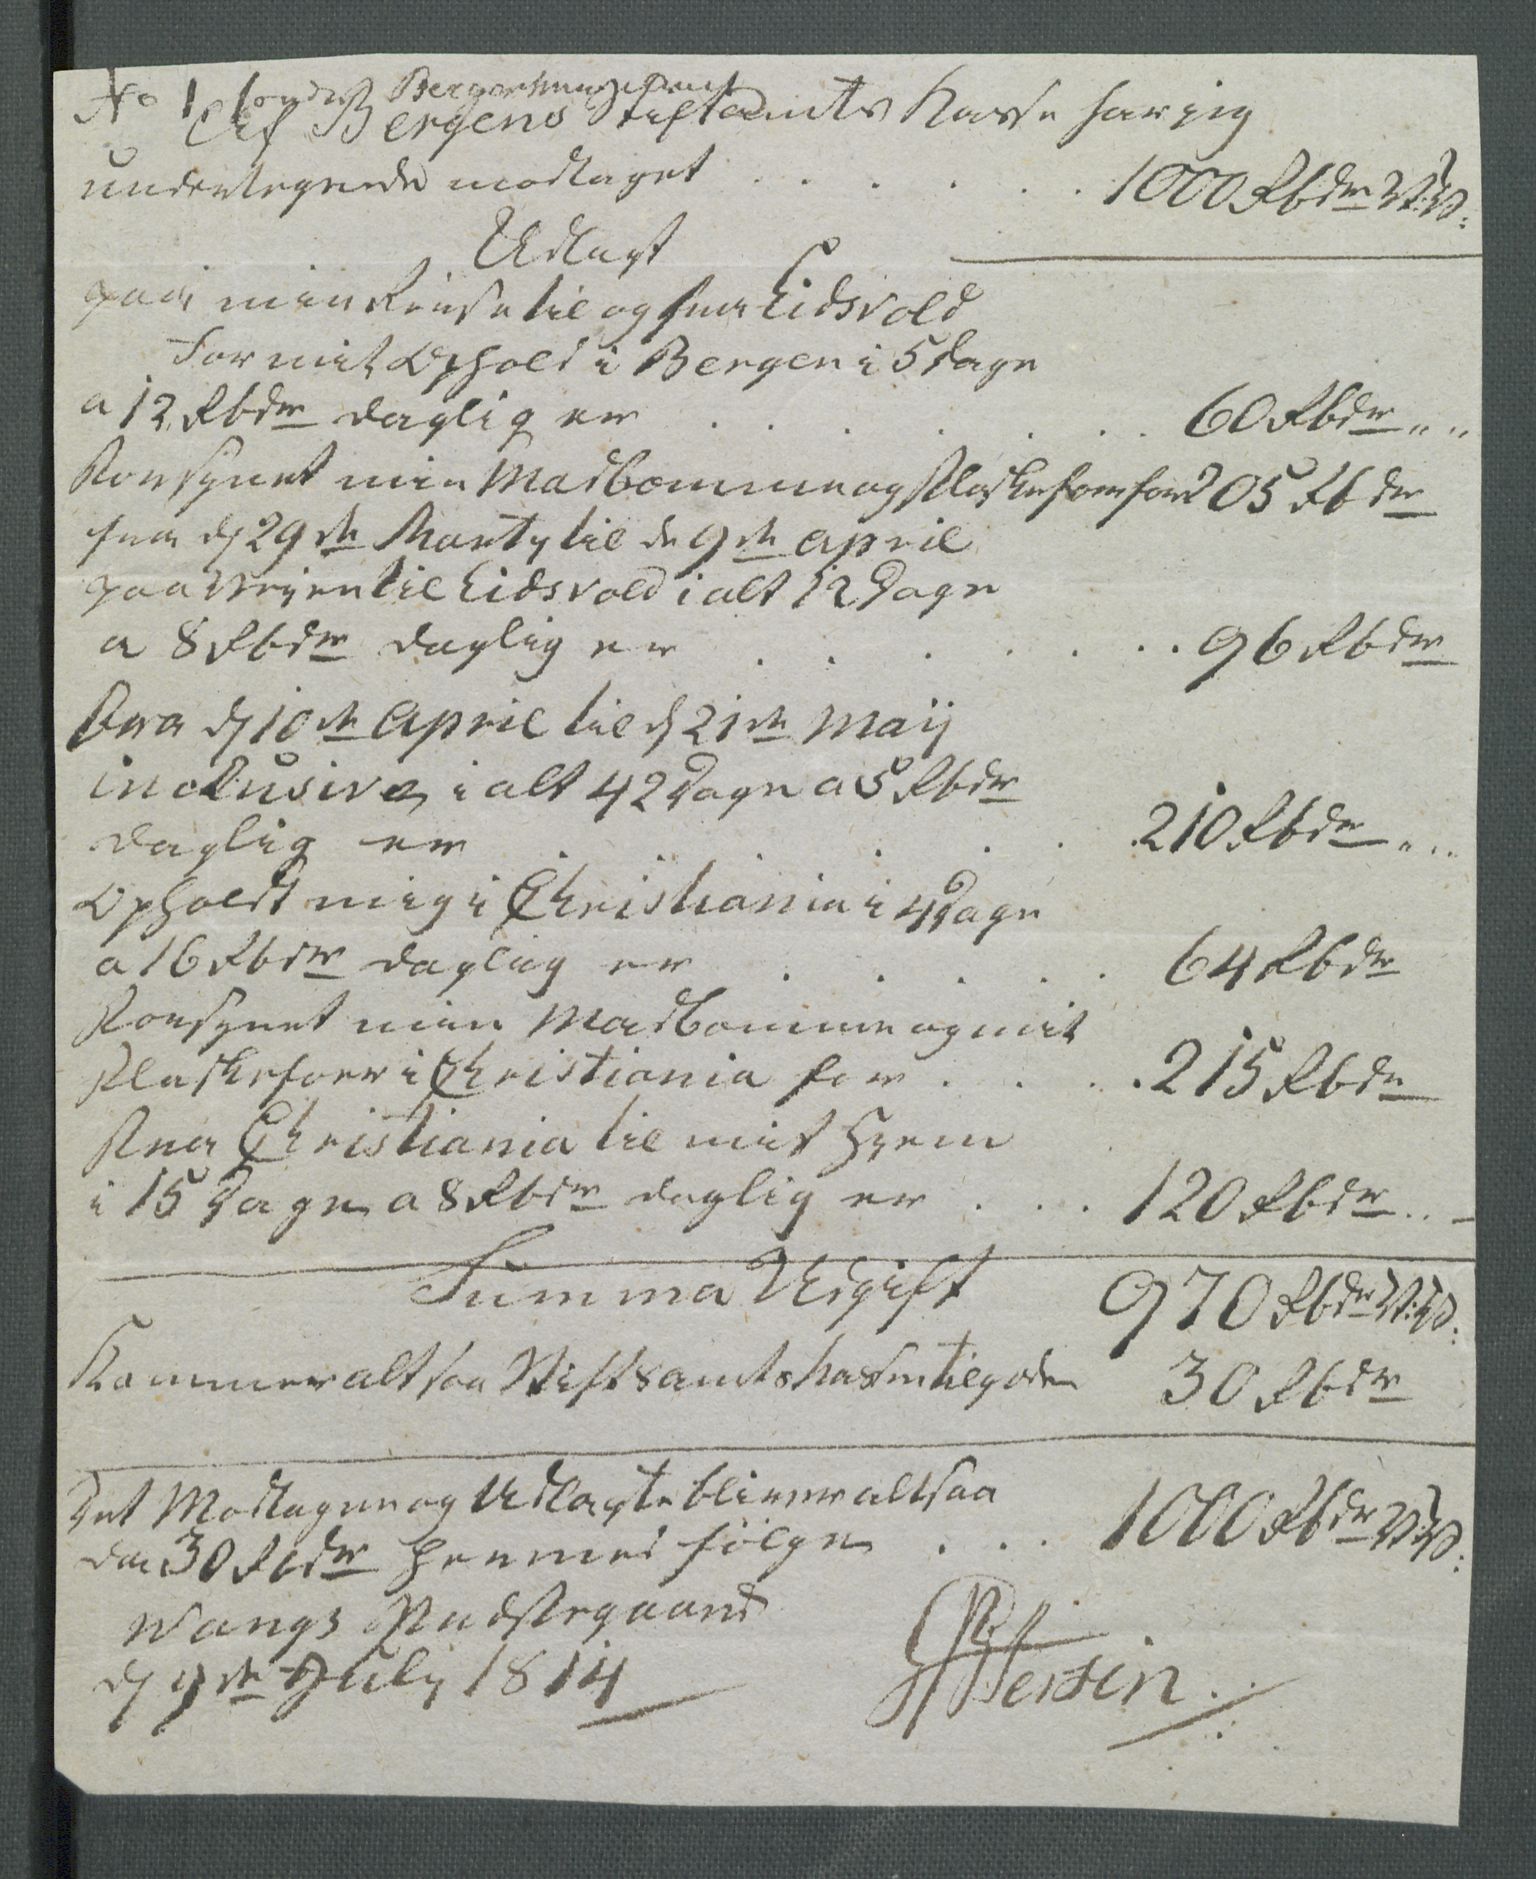 No 1
Af Bergens Stiftamts Kasse har jeg
undertegnede modtaget . . . . . . 1000 Rbdr N:V:
Udlagt
paa min Reise til og fra Eidsvold
For mit Ophold i Bergen i 5 Dage
a 12 Rbdr daglig er . . . . . . . 60 Rbdr „ „
Forsynet min Madbomme og Flaskefoer for 205 Rbdr
fra d 29de Marty til de 9de april
paa Veyen til Eidsvold i alt 12 Dage
a 8 Rbdr daglig er . . . . . . . 96 Rbdr
Fra d 10de April til d 21de Maij
inclusive, i alt 42 Dage a 5 Rbdr
daglig er . . . . . 210 Rbdr „ „
Opholdt mig i Christiania i 4 Dage
a 16 Rbdr daglig er . . . . . 64 Rbdr
Forsynet min Madbomme og mit
Flaskefoer i Christiania for . . . . 215 Rbdr
Fra Christiania til mit Hjem
i 15 Dage a 8 Rbdr daglig er . . . 120 Rbdr „ –
Summa Udgift 970 Rbdr N:V:
Kommer altsaa Stiftsamtskassen tilgode 30 Rbdr
Det Modtagne og Udlagte bliver altsaa 1000 Rbdr N:V:
da 30 Rbdr hermed følger . . .
Wangs Præstegaard
d 9de July 1814
Hersin